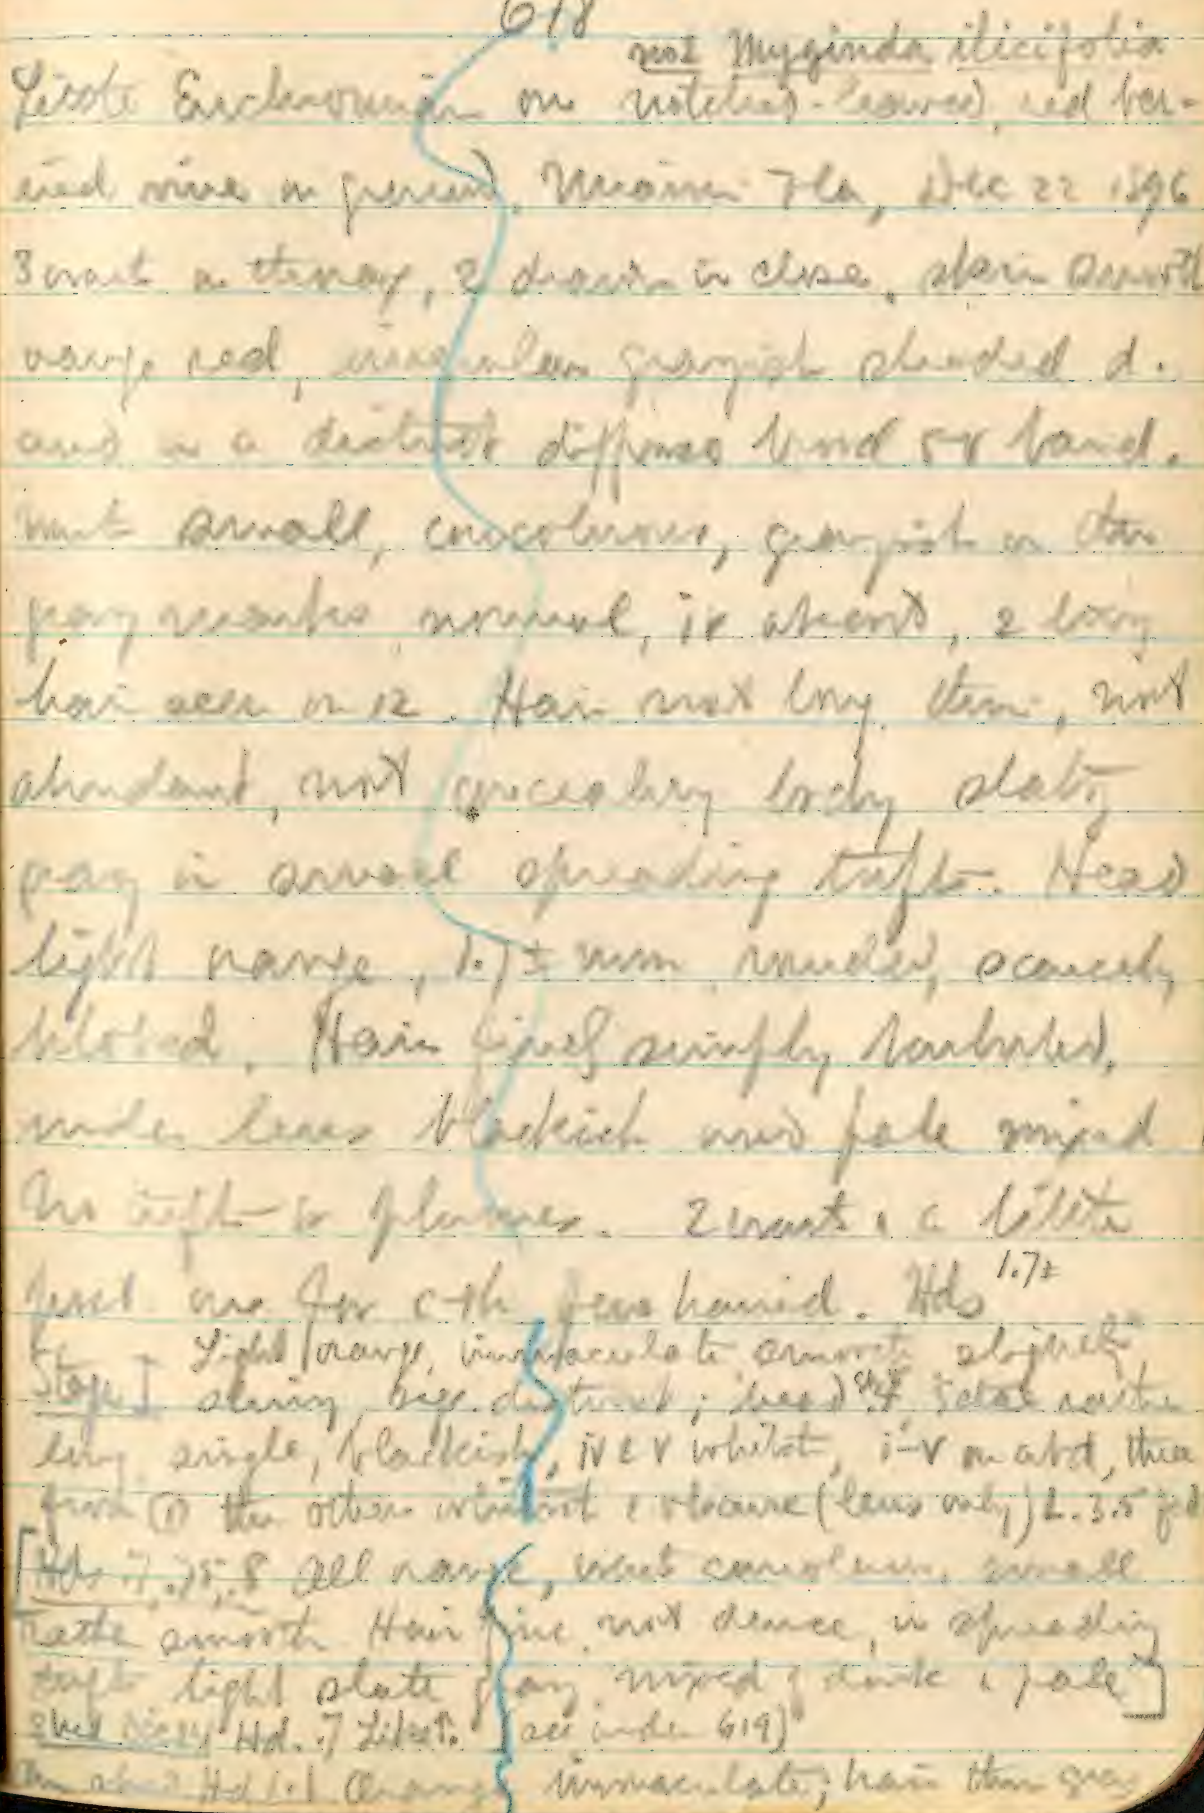 618
not Myginda ilicifolia
Little Euchromian on notched-leaved, red ber-
ried vine on ground, Miami Fla, Dec 22 1896
3 wart a tenax, 2 drawn in close, skin smooth
orange red, grayish shaded d.
and in a distinct diffuse broad s-v band.
wart small, concolorous, grayish in the
gray normal, iv absent, 2 long
hair seen on 12. Hair not long thin, not
abundant, not concealing body slaty
gray in small spreading tufts. Head
light orange, 1.7± mm rounded, scarcely
bilobed. Hair finely simply barbuled,
under lens blackish and pale mixed
No tufts or plumes. 2 wart a little
for c-th few haired. Hds 1.7±
Light orange, immaculate smooth slightly
Stage I shiny, distinct; head .4 setae rather
long single, blackish, iv & v whitish, i-v on abd, three
from the other whitish & obscure (lens only) L. 3.5
[Hds .7, .75, .8 all orange, wart concolorous, small
rather smooth Hair fine, not dense, in spreading
tufts light slate gray mixed of dark & pale]
Hd. .7 Like (see under 619)
Hd 1.1 Orange immaculate; hair thin gray